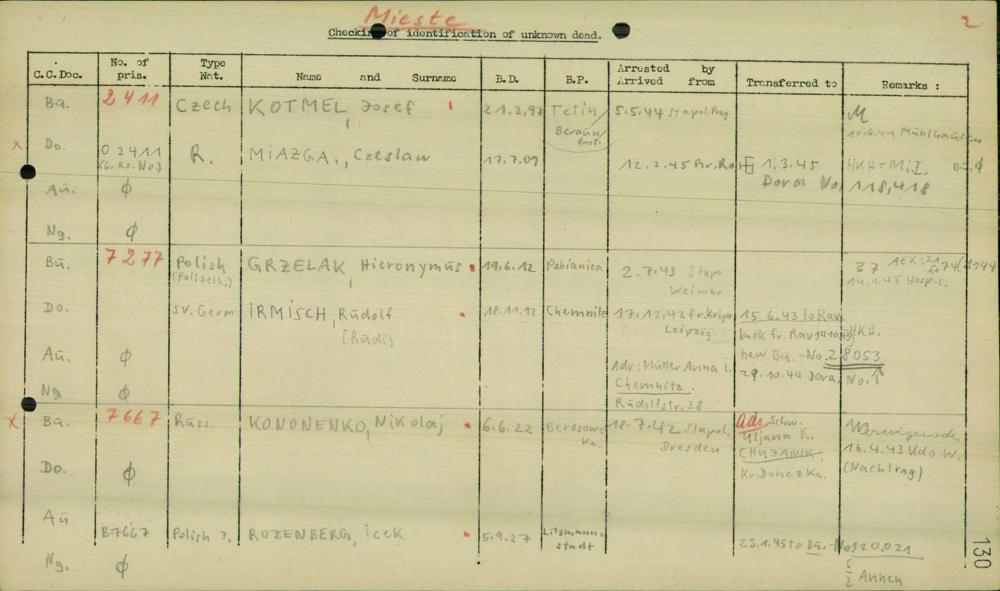 Mieste
2
Checking of identification of unknown dead.
C.C.Doc. No. of pris. Type Nat. Name and Surname B.D. B.P. Arrested by Arrived from Transferred to Remarks :
Bu. 2411 Czech KOTMEL, Josef 21.2.97 Tetin 5.5.44 Stapol. Prag M
Beraun Prot. 10.6.44 Mühlhausen
x Do. 02411 R. MIAZGA, Czeslaw 17.7.09 12.2.45 Gr. Ro. 1.3.45 HKB = M.I. Bu. φ
(Gr. Ro. No.) Dora No. 118,418
Au. φ
Ng. φ
Bu. 7277 Polish GRZELAK, Hieronymus 19.6.12 Pabianice 2.7.43 Stapo 37 AEK:
(Polizeih.) Weimar 14.1.45 Hospic.
Do. sv. Germ IRMISCH, Rudolf 18.11.12 Chemnitz 17.12.42 fr. Kripo 15.6.43 to Rav.
(Rudi) Leipzig back fr. Rav HKB.
Au. φ Adr: Mutter Anna I. new Bu.-No. 28053
Chemnitz. 29.10.44 Dora. No. ↑
Ng φ Rudolfstr. 28.
x Bu. 7667 Russ. KONONENKO, Nikolaj 6.6.22 Berosow- 18.7.42 Stapol. Adr. Schw. Wernigerode
ka. Dresden Uljana K. 16.4.43 Kdo W.
(Nachtrag)
Do. φ Kr. Donezka.
Au. B7667 Polish J. ROZENBERG, icek 5.9.27 Litzmann- 23.1.45 to Bu.-No. 120,021
stadt
Ng. φ
Annen
130